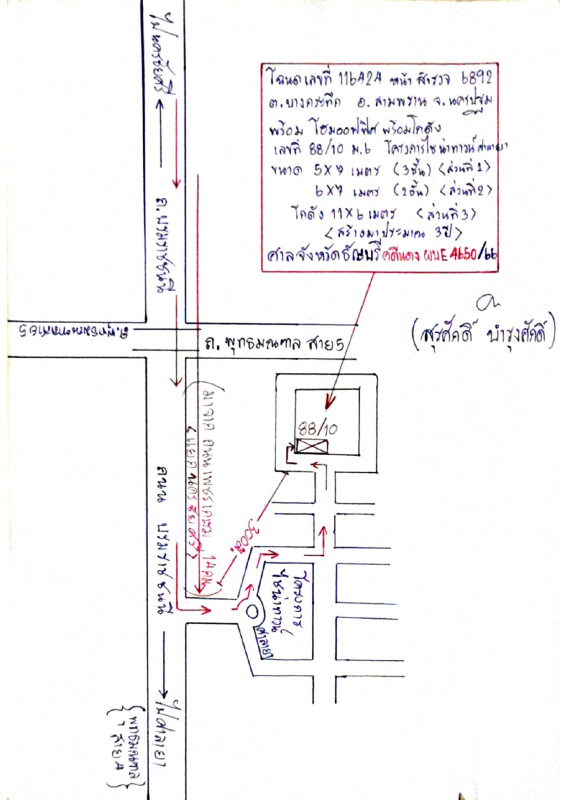 ไปนครชัยศรี
โฉนดเลขที่ 116424 หน้าสำรวจ 6892
ต.บางกระทึก อ.สามพราน จ.นครปฐม
พร้อม โฮมออฟฟิศ พร้อมโกดัง
เลขที่ 88/10 ม.6 โครงการไชน่าทาวน์ศาลายา
ขนาด 5X7 เมตร (3ชั้น) <ส่วนที่ 1>
6X7 เมตร (2ชั้น) <ส่วนที่ 2>
โกดัง 11X6 เมตร <ส่วนที่ 3>
<สร้างมาประมาณ 3 ปี>
ศาลจังหวัดธัญบุรี คดีแดง ผบE 4650/66
ถ.บรมราชชนนี
(สุรศักดิ์ บำรุงศักดิ์)
ถ.พุทธมณฑลสาย5
ถ. พุทธมณฑล สาย 5
88/10
300ม.
ถนน บรมราชชนนี
โครงการ
ไชน่าทาวน์
ศาลายา
ไปศาลายา